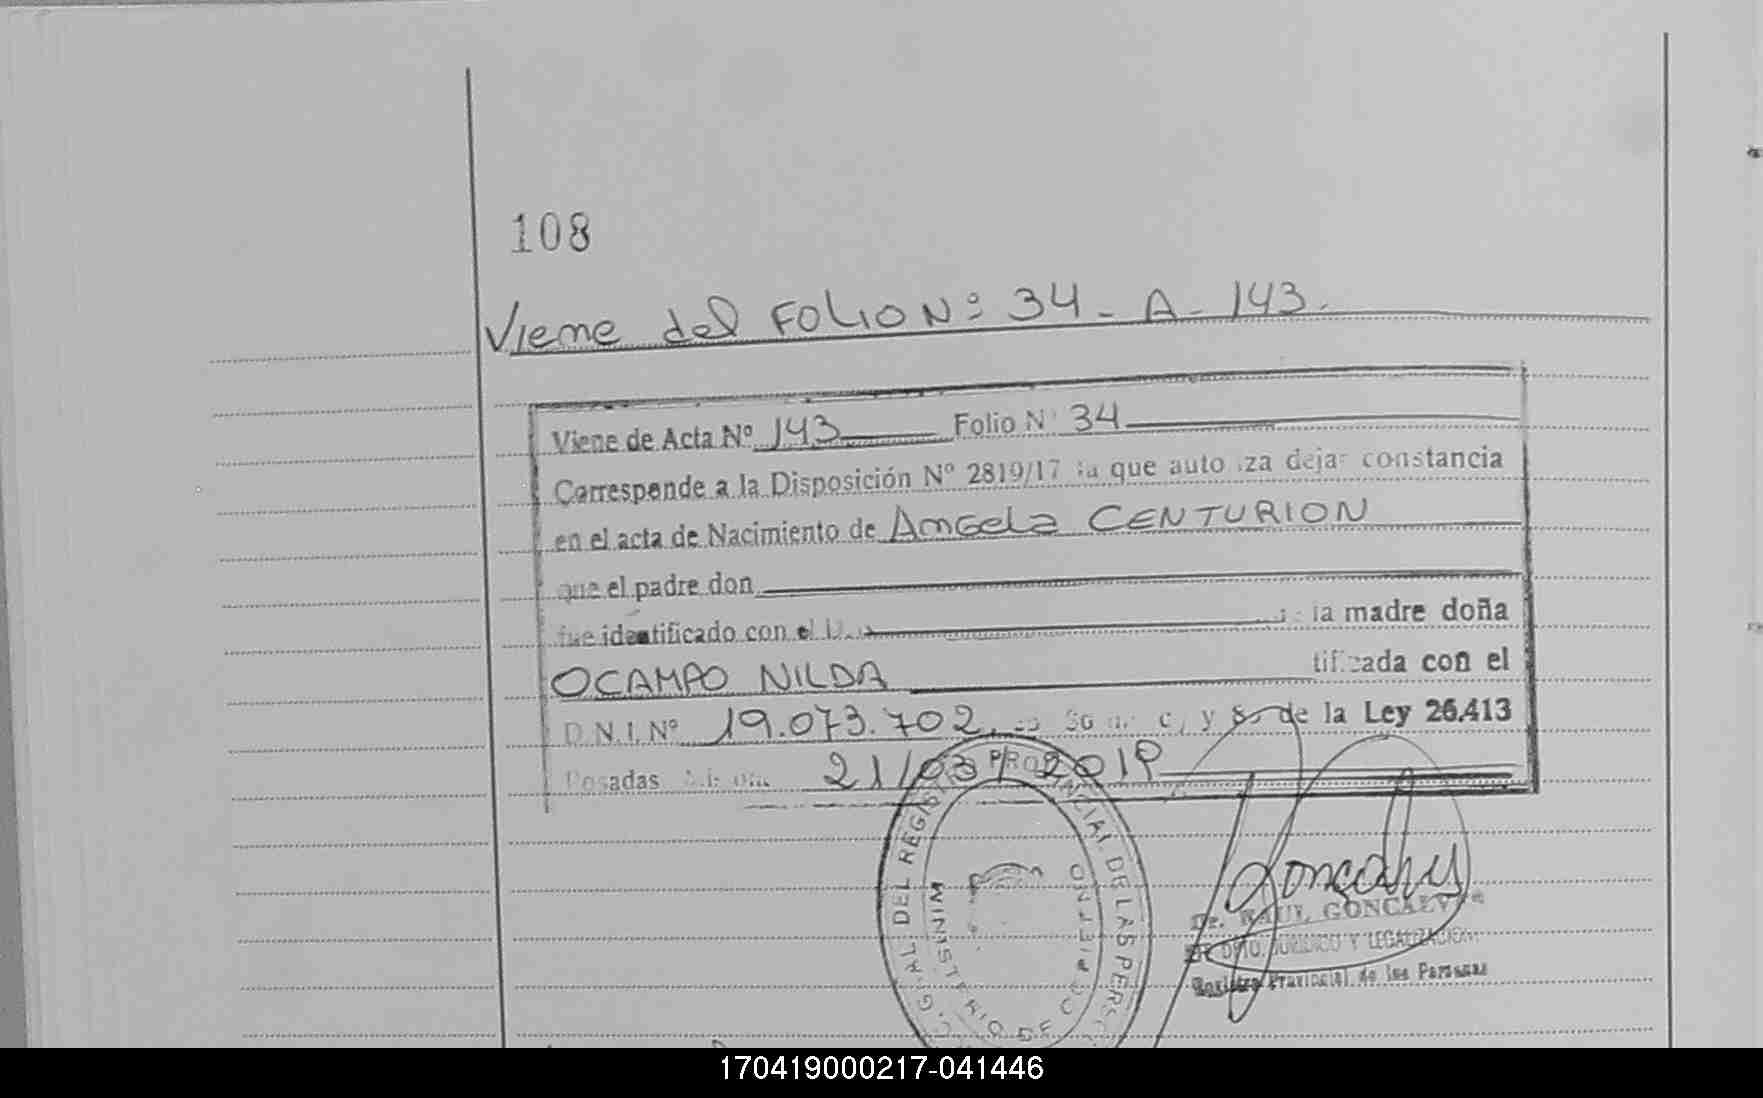 108
Viene del FOLIO Nº 34 - A - 143.
Viene de Acta Nº 143 Folio Nº 34
Corresponde a la Disposición Nº 2819/17 la que autoriza dejar constancia
en el acta de Nacimiento de Angela CENTURION
que el padre don
fue identificado con el la madre doña
OCAMPO NILDA tificada con el
D.N.I. Nº 19.073.702 y de la Ley 26.413
Posadas 21/03/2019
G·RAL DEL REGISTRO PROVINCIAL DE LAS
MINISTERIO DE GOBIERNO
Dr. RAUL GONCALVES
DPTO. JURIDICO Y LEGALIZACION
Registro Provincial de las Personas
170419000217-041446